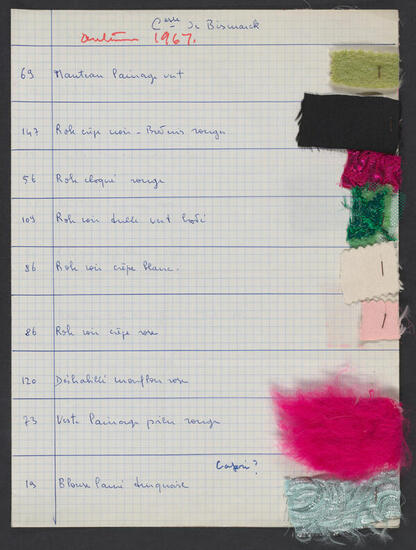 Csse de Bismarck
Automne 1967.
69 Manteau lainage vert
147 Robe crêpe noir - Brodeis rouge
56 Robe cloqué rouge
109 Robe soir tulle vert brodé
86 Robe soir crêpe blanc.
86 Robe soir crêpe rose
120 Déshabillé mouflon rose
73 Veste lainage poilu rouge
Capri ?
19 Blouse lamé turquoise